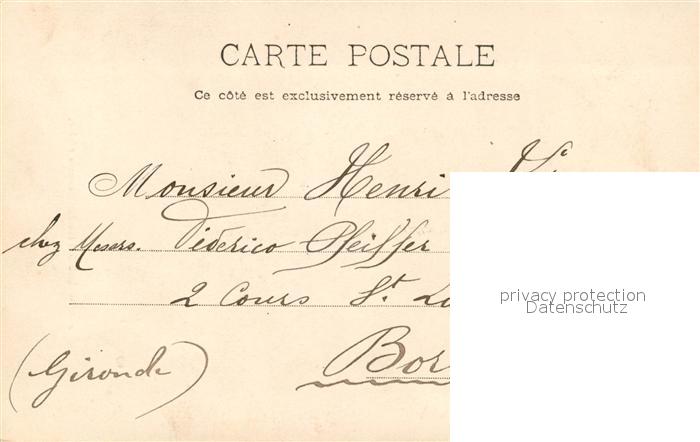 CARTE POSTALE
Ce côté est exclusivement réservé à l'adresse
Monsieur Henri
chez Messrs. Féderico Pfeiffer
2 Cours St.
privacy protection
Datenschutz
(Gironde)